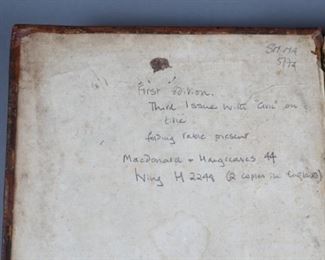 5/72
First Edition.
Third Issue with "Civil" on
title.
folding table present
Macdonald + Hargreaves 44
Wing H 2249 (2 copies in England)